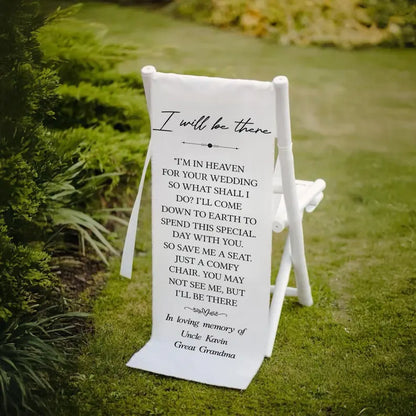 I will be there
"I'M IN HEAVEN
FOR YOUR WEDDING
SO WHAT SHALL I
DO? I'LL COME
DOWN TO EARTH TO
SPEND THIS SPECIAL
DAY WITH YOU.
SO SAVE ME A SEAT.
JUST A COMFY
CHAIR. YOU MAY
NOT SEE ME, BUT
I'LL BE THERE
In loving memory of
Uncle Kavin
Great Grandma